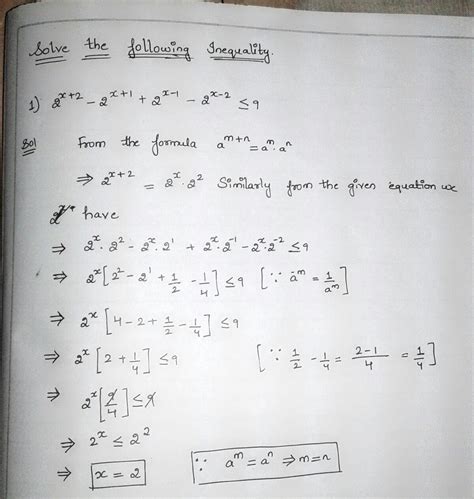 Solve the following Inequality.
1) 2^{x+2} - 2^{x+1} + 2^{x-1} - 2^{x-2} ≤ 9
Sol From the formula a^{m+n} = a^m . a^n
⇒ 2^{x+2} = 2^x . 2^2 Similarly from the given equation we
have
⇒ 2^x . 2^2 - 2^x . 2^1 + 2^x . 2^{-1} - 2^x . 2^{-2} ≤ 9
⇒ 2^x [2^2 - 2^1 + 1/2 - 1/4] ≤ 9 [∵ a^{-m} = 1/a^m]
⇒ 2^x [4 - 2 + 1/2 - 1/4] ≤ 9
⇒ 2^x [2 + 1/4] ≤ 9 [∵ 1/2 - 1/4 = 2-1/4 = 1/4]
⇒ 2^x [9/4] ≤ 9
⇒ 2^x ≤ 2^2
⇒ x = 2 ∵ a^m = a^n ⇒ m = n